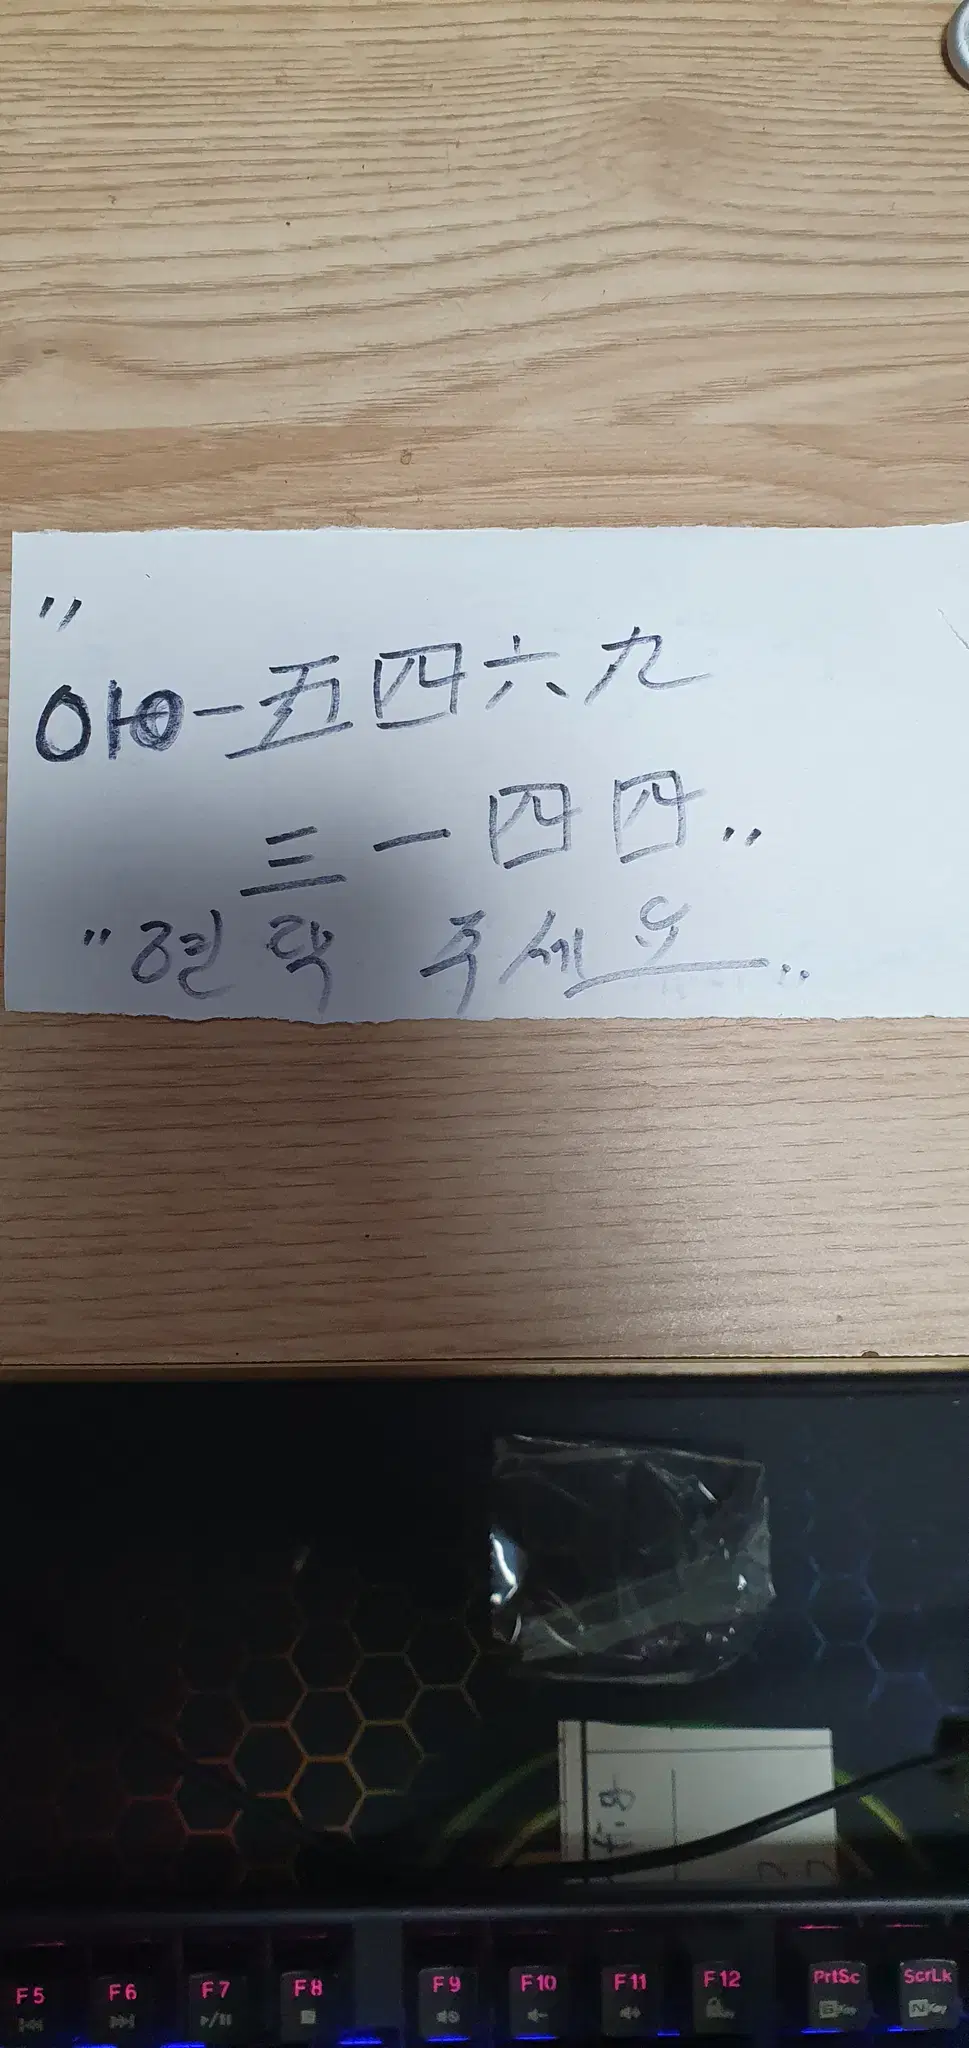 "
010-五四六九
三一四四"
"연락 주세요"
F5 F6 F7 F8 F9 F10 F11 F12 PrtSc ScrLk